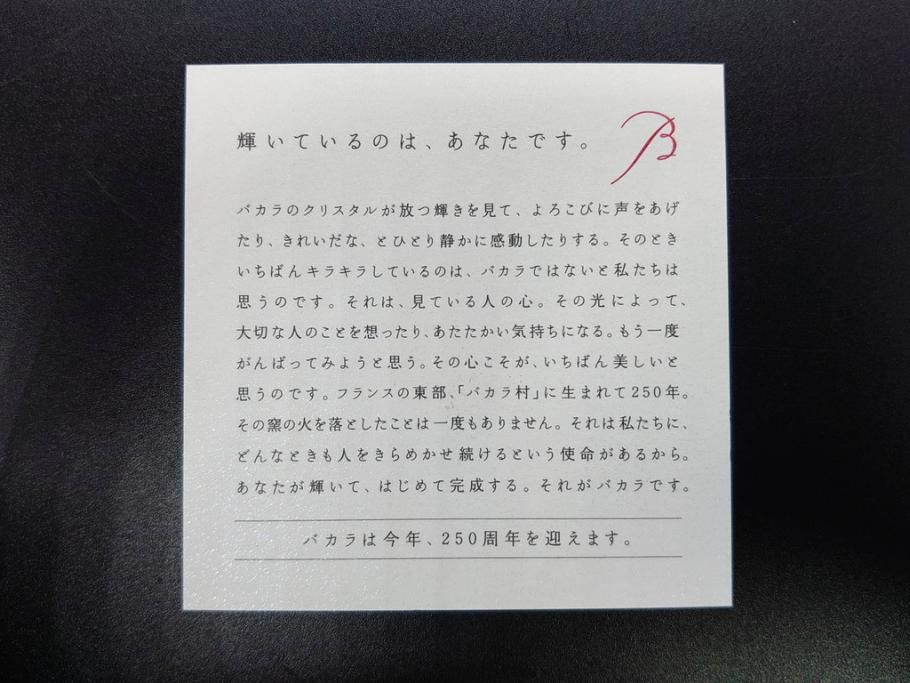 輝いているのは、あなたです。
B
バカラのクリスタルが放つ輝きを見て、よろこびに声をあげ
たり、きれいだな、とひとり静かに感動したりする。そのとき
いちばんキラキラしているのは、バカラではないと私たちは
思うのです。それは、見ている人の心。その光によって、
大切な人のことを想ったり、あたたかい気持ちになる。もう一度
がんばってみようと思う。その心こそが、いちばん美しいと
思うのです。フランスの東部、「バカラ村」に生まれて250年。
その窯の火を落としたことは一度もありません。それは私たちに、
どんなときも人をきらめかせ続けるという使命があるから。
あなたが輝いて、はじめて完成する。それがバカラです。
バカラは今年、250周年を迎えます。